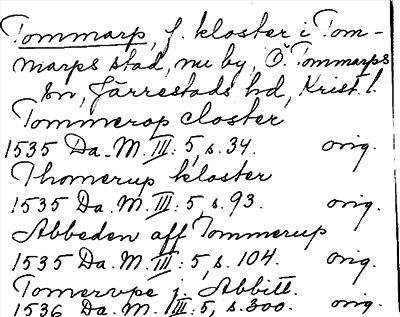 Tommarp, f. kloster i Tom-
marps stad, nu by, Ö. Tommarps
sn, Järrestads hd, Krist. l.
Tommerop closter
1535 Da. M. III: 5, s. 34. orig.
Thomerup kloster
1535 Da. M. III: 5, s. 93. orig.
Abbeden aff Tommerup
1535 Da. M. III: 5, s. 104. orig.
Tomervpe j. Abbitt.
1536 Da. M. III: 5, s. 300. orig.